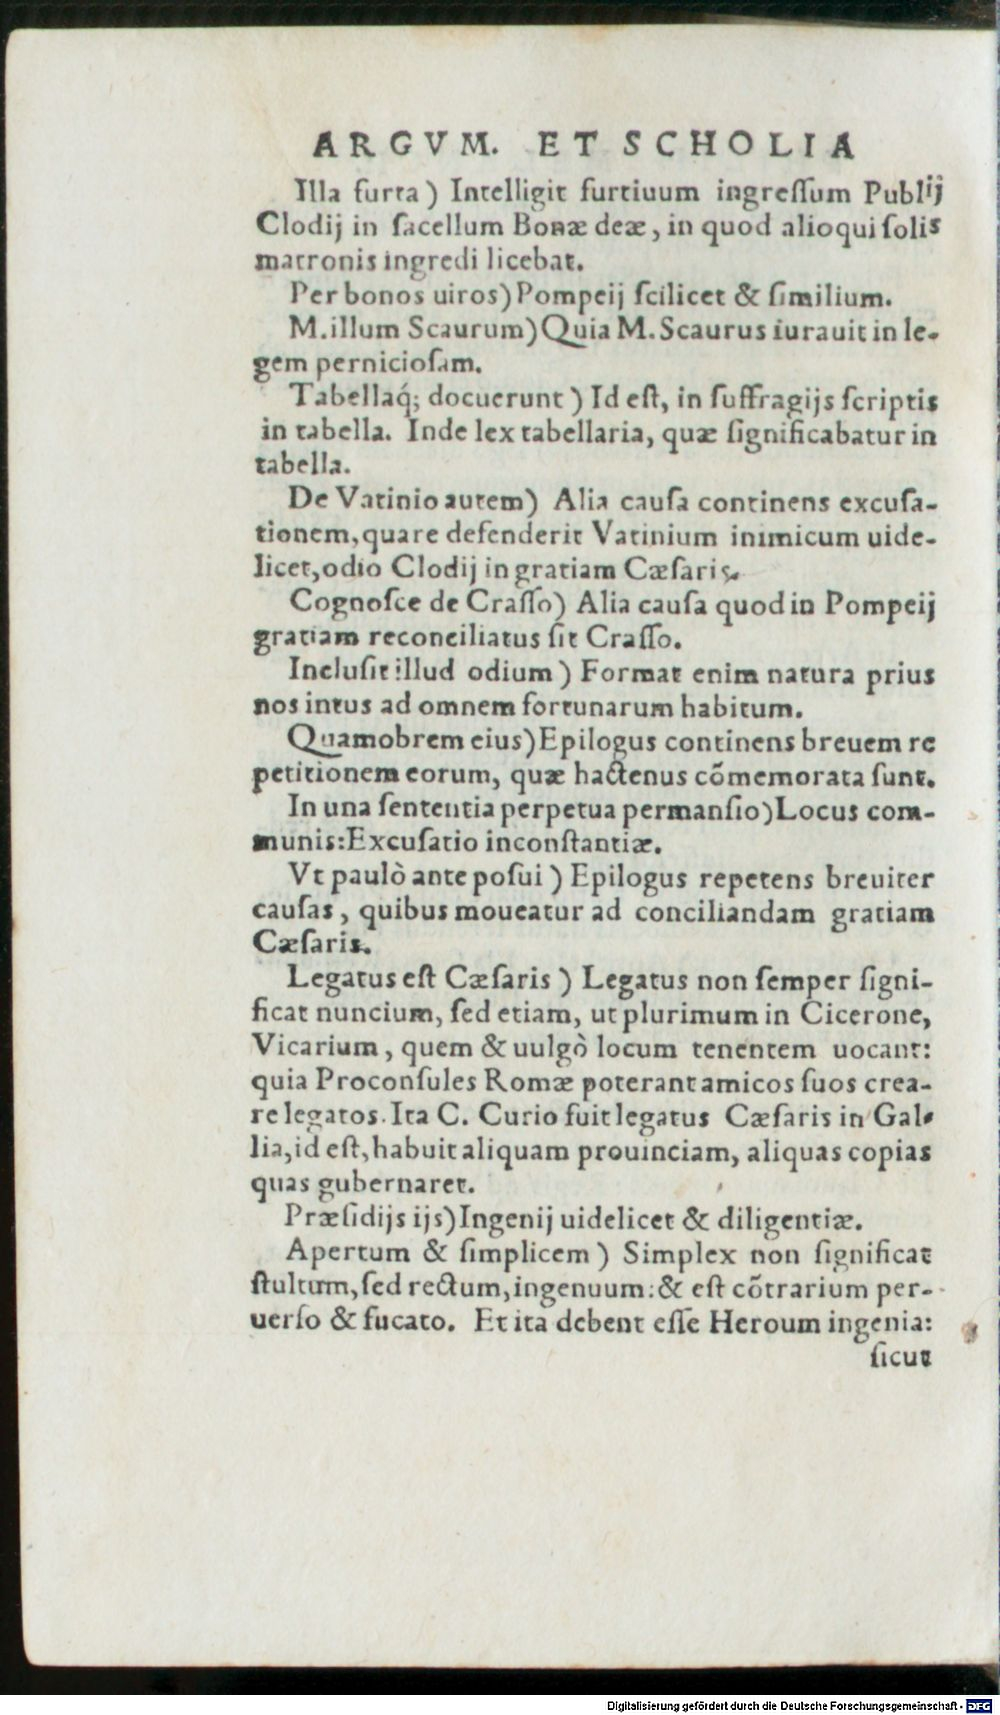 ARGVM. ET SCHOLIA
Illa furta) Intelligit furtiuum ingreſſum Publij
Clodij in ſacellum Bonæ deæ, in quod alioqui ſolis
matronis ingredi licebat.
Per bonos uiros) Pompeij ſcilicet & ſimilium.
M. illum Scaurum) Quia M. Scaurus iurauit in le-
gem pernicioſam.
Tabellaq́; docuerunt) Id eſt, in ſuffragijs ſcriptis
in tabella. Inde lex tabellaria, quæ ſignificabatur in
tabella.
De Vatinio autem) Alia cauſa continens excuſa-
tionem, quare defenderit Vatinium inimicum uide-
licet, odio Clodij in gratiam Cæſaris.
Cognoſce de Craſſo) Alia cauſa quod in Pompeij
gratiam reconciliatus ſit Craſſo.
Incluſit illud odium) Format enim natura prius
nos intus ad omnem fortunarum habitum.
Quamobrem eius) Epilogus continens breuem re
petitionem eorum, quæ hactenus cõmemorata ſunt.
In una ſententia perpetua permanſio) Locus com-
munis: Excuſatio inconſtantiæ.
Vt paulò ante poſui) Epilogus repetens breuiter
cauſas, quibus moueatur ad conciliandam gratiam
Cæſaris.
Legatus eſt Cæſaris) Legatus non ſemper ſigni-
ficat nuncium, ſed etiam, ut plurimum in Cicerone,
Vicarium, quem & uulgò locum tenentem uocant:
quia Proconſules Romæ poterant amicos ſuos crea-
re legatos. Ita C. Curio fuit legatus Cæſaris in Gal-
lia, id eſt, habuit aliquam prouinciam, aliquas copias
quas gubernaret.
Præſidijs ijs) Ingenij uidelicet & diligentiæ.
Apertum & ſimplicem) Simplex non ſignificat
ſtultum, ſed rectum, ingenuum: & eſt cõtrarium per-
uerſo & fucato. Et ita debent eſſe Heroum ingenia:
ſicut
Digitalisierung gefördert durch die Deutsche Forschungsgemeinschaft - DFG